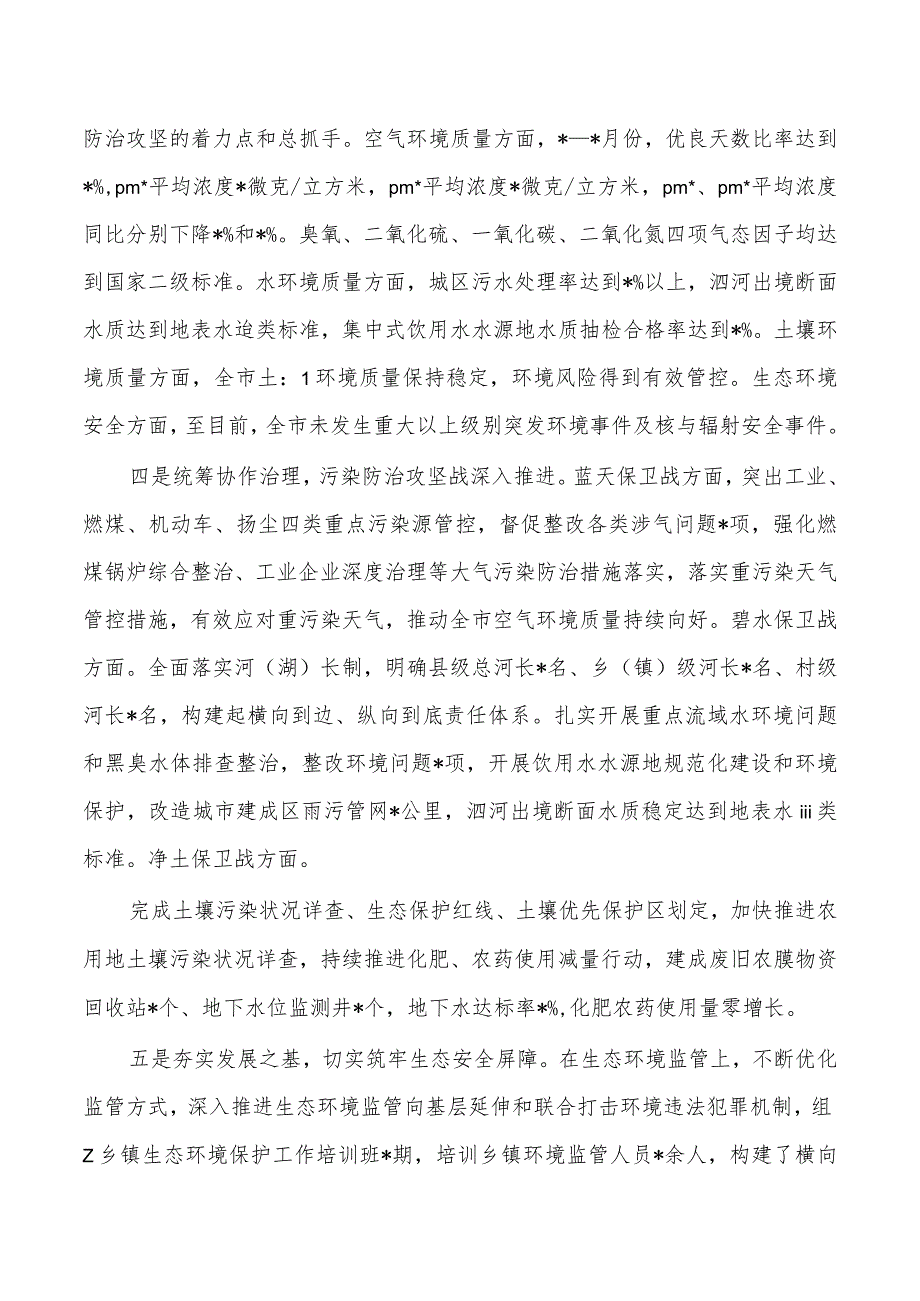 防治攻坚的着力点和总抓手。空气环境质量方面，*—*月份，优良天数比率达到
*%,pm*平均浓度*微克/立方米，pm*平均浓度*微克/立方米，pm*、pm*平均浓度
同比分别下降*%和*%。臭氧、二氧化硫、一氧化碳、二氧化氮四项气态因子均达
到国家二级标准。水环境质量方面，城区污水处理率达到*%以上，泗河出境断面
水质达到地表水迨类标准，集中式饮用水水源地水质抽检合格率达到*%。土壤环
境质量方面，全市土：1环境质量保持稳定，环境风险得到有效管控。生态环境
安全方面，至目前，全市未发生重大以上级别突发环境事件及核与辐射安全事件。
四是统筹协作治理，污染防治攻坚战深入推进。蓝天保卫战方面，突出工业、
燃煤、机动车、扬尘四类重点污染源管控，督促整改各类涉气问题*项，强化燃
煤锅炉综合整治、工业企业深度治理等大气污染防治措施落实，落实重污染天气
管控措施，有效应对重污染天气，推动全市空气环境质量持续向好。碧水保卫战
方面。全面落实河（湖）长制，明确县级总河长*名、乡（镇）级河长*名、村级
河长*名，构建起横向到边、纵向到底责任体系。扎实开展重点流域水环境问题
和黑臭水体排查整治，整改环境问题*项，开展饮用水水源地规范化建设和环境
保护，改造城市建成区雨污管网*公里，泗河出境断面水质稳定达到地表水iii类
标准。净土保卫战方面。
完成土壤污染状况详查、生态保护红线、土壤优先保护区划定，加快推进农
用地土壤污染状况详查，持续推进化肥、农药使用减量行动，建成废旧农膜物资
回收站*个、地下水位监测井*个，地下水达标率*%,化肥农药使用量零增长。
五是夯实发展之基，切实筑牢生态安全屏障。在生态环境监管上，不断优化
监管方式，深入推进生态环境监管向基层延伸和联合打击环境违法犯罪机制，组
Z乡镇生态环境保护工作培训班*期，培训乡镇环境监管人员*余人，构建了横向